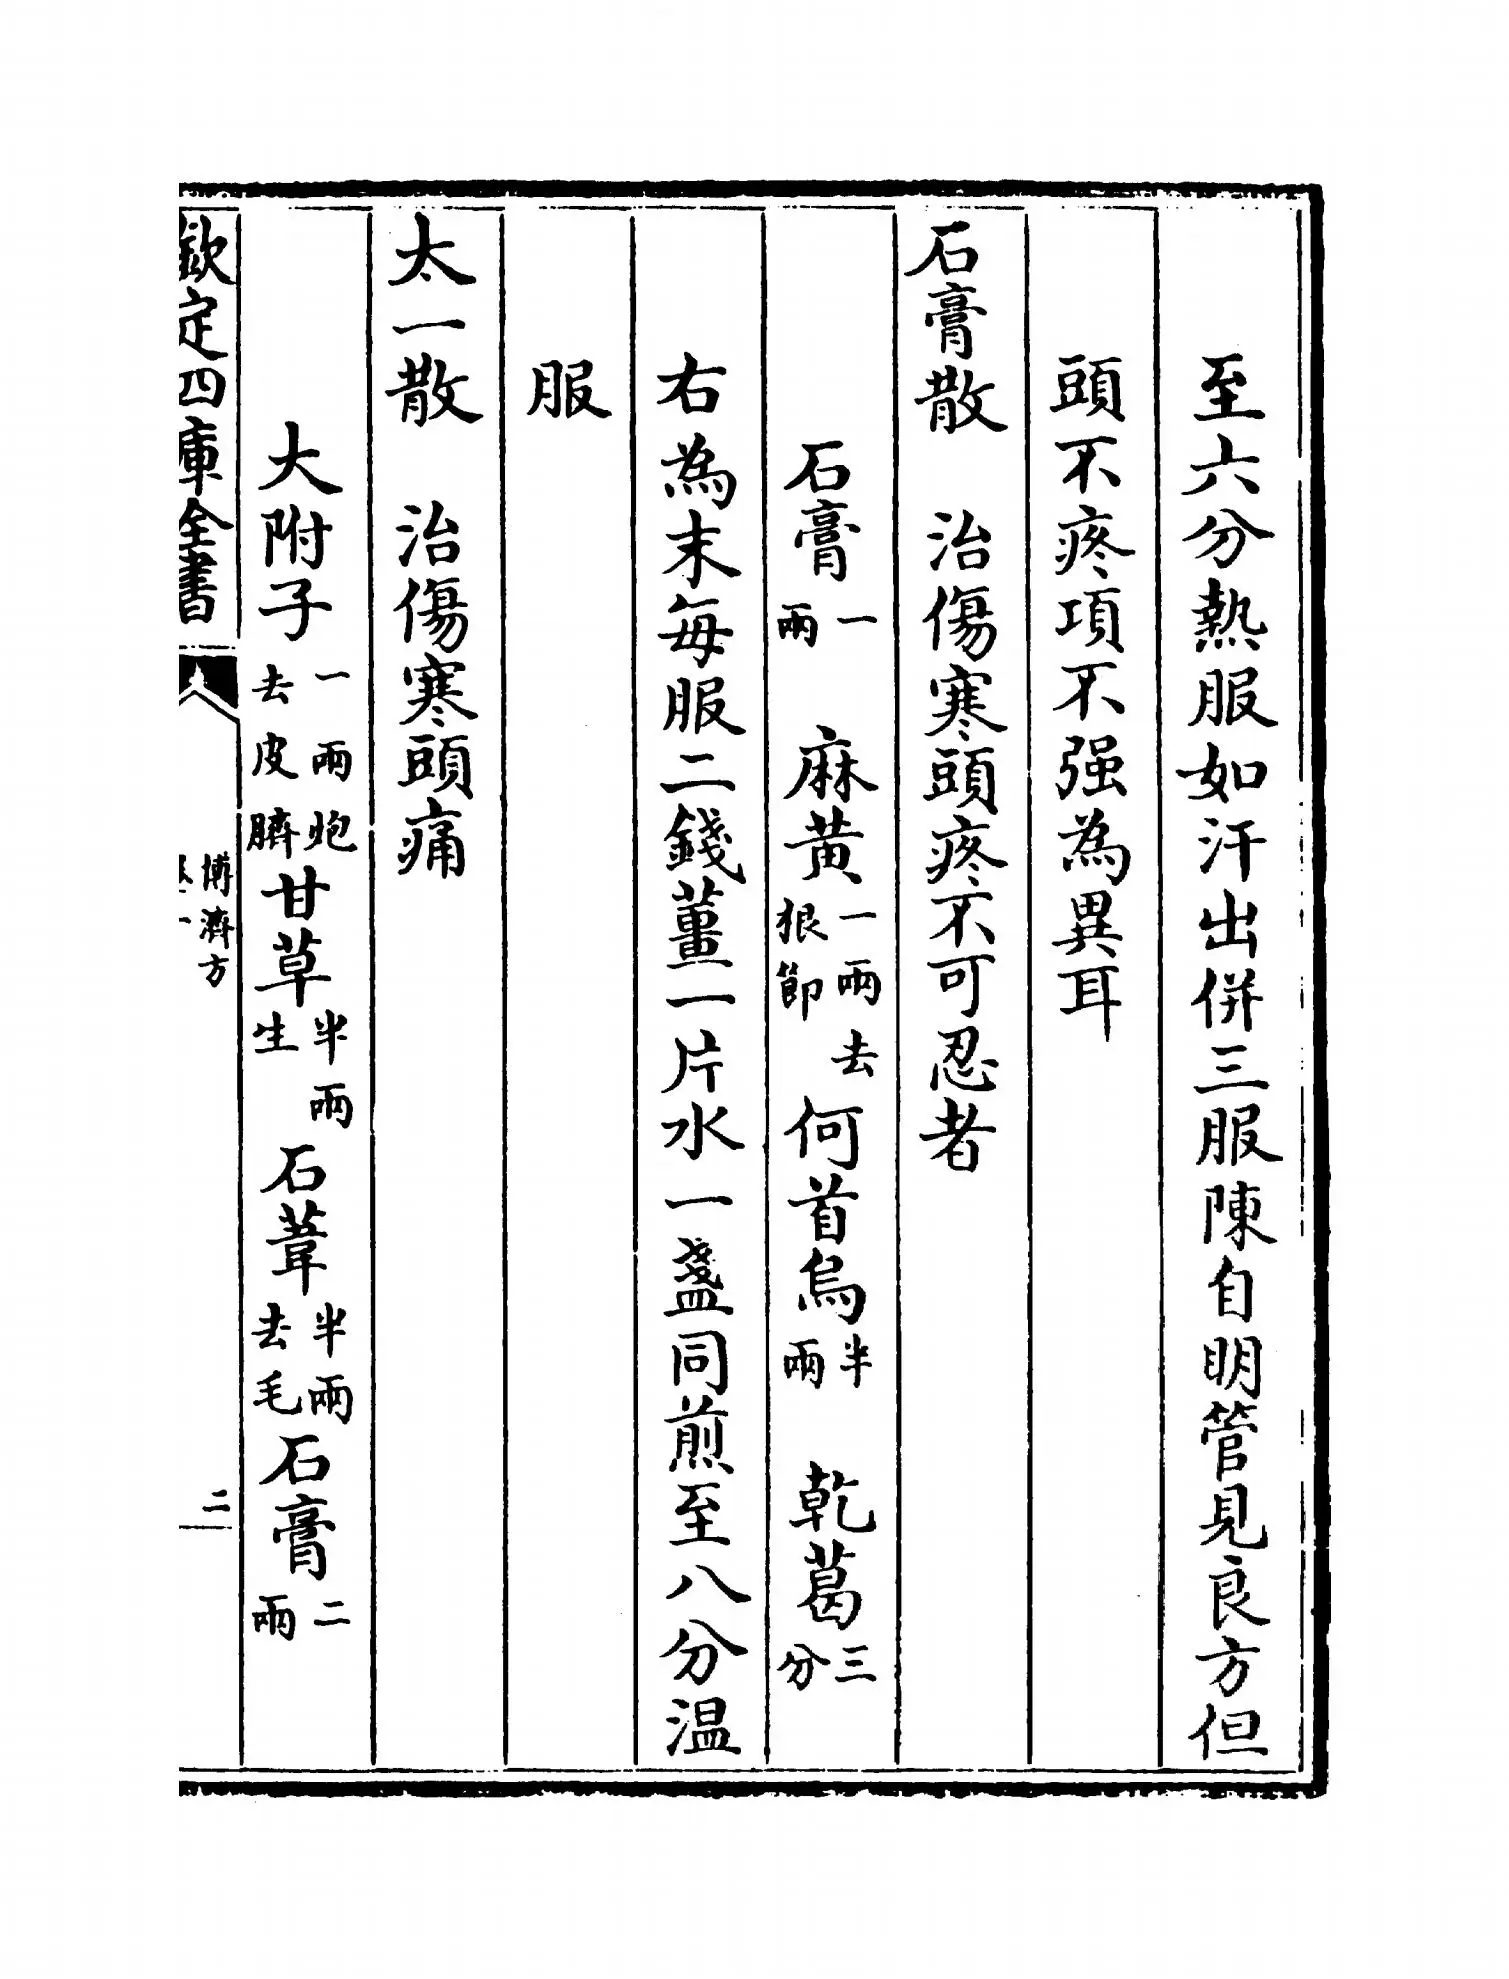 至六分熱服如汗出併三服陳自明管見良方但
頭不疼項不强為異耳
石膏散　治傷寒頭疼不可忍者
石膏一兩　麻黃一兩去根節　何首烏半兩　乾葛三分
右為末每服二錢薑一片水一盞同煎至八分温
服
太一散　治傷寒頭痛
大附子一兩炮去皮臍　甘草半兩生　石葦半兩去毛　石膏二兩
欽定四庫全書
博濟方
二